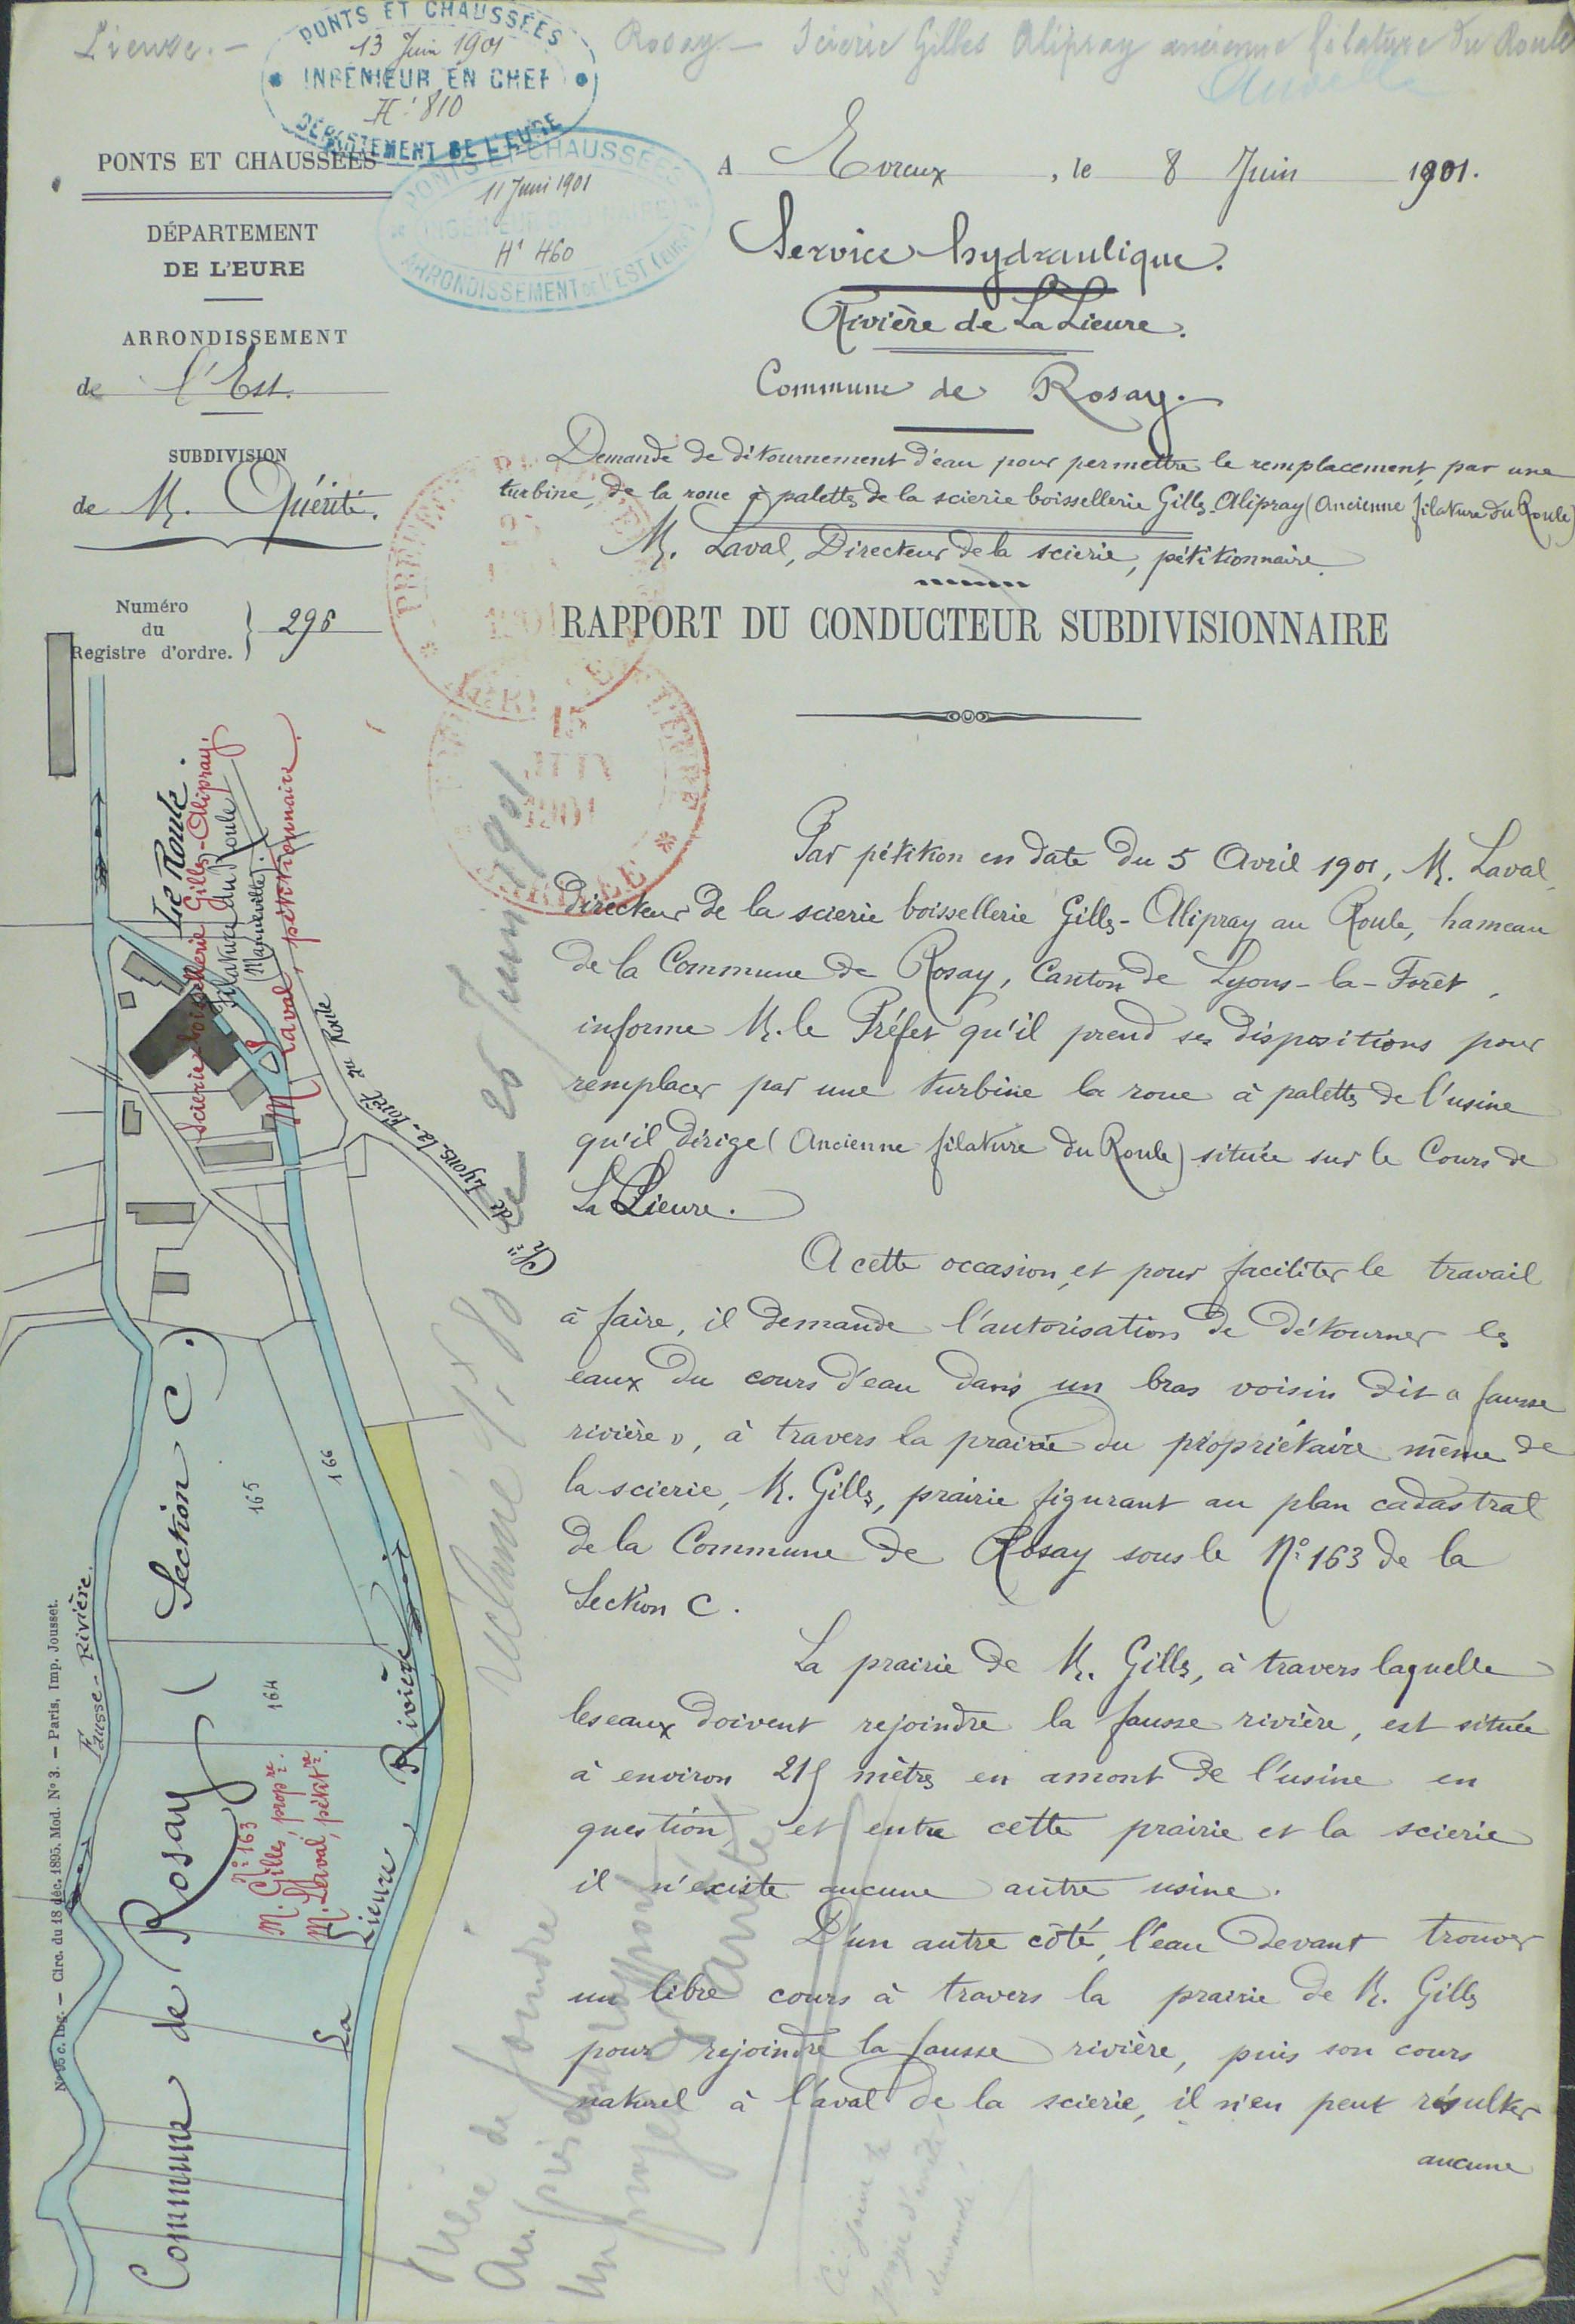 Lieure. - Rosay - Scierie Gilles Alipray ancienne filature du Roule
Andelle
PONTS ET CHAUSSÉES
13 Juin 1901
INGÉNIEUR EN CHEF
H' 810
DÉPARTEMENT DE L'EURE
PONTS ET CHAUSSÉES
11 Juin 1901
H' 460
ARRONDISSEMENT DE L'EST (EURE)
PONTS ET CHAUSSÉES
DÉPARTEMENT
DE L'EURE
ARRONDISSEMENT
de l'Est.
SUBDIVISION
de M. Quérité.
Numéro
du
Registre d'ordre. } 296
A Evreux, le 8 Juin 1901.
Service hydraulique.
Rivière de La Lieure.
Commune de Rosay.
Demande de détournement d'eau pour permettre le remplacement, par une
turbine, de la roue à palettes de la scierie boissellerie Gilles-Alipray (Ancienne filature du Roule)
M. Laval, Directeur de la scierie, pétitionnaire.
RAPPORT DU CONDUCTEUR SUBDIVISIONNAIRE
15
JUIN
1901
Par pétition en date du 5 Avril 1901, M. Laval,
Directeur de la scierie boissellerie Gilles-Alipray au Roule, hameau
de la Commune de Rosay, Canton de Lyons-la-Forêt,
informe M. le Préfet qu'il prend ses dispositions pour
remplacer par une turbine la roue à palettes de l'usine
qu'il dirige (Ancienne filature du Roule) située sur le Cours de
La Lieure.
A cette occasion, et pour faciliter le travail
à faire, il demande l'autorisation de détourner les
eaux du cours d'eau dans un bras voisin dit « fausse
rivière », à travers la prairie du propriétaire même de
la scierie, M. Gilles, prairie figurant au plan cadastral
de la Commune de Rosay sous le N° 163 de la
Section C.
La prairie de M. Gilles, à travers laquelle
les eaux doivent rejoindre la fausse rivière, est située
à environ 215 mètres en amont de l'usine en
question, et entre cette prairie et la scierie
il n'existe aucune autre usine.
D'un autre côté, l'eau devant trouver
un libre cours à travers la prairie de M. Gilles
pour rejoindre la fausse rivière, puis son cours
naturel à l'aval de la scierie, il n'en peut résulter
aucune
Le Roule.
Scierie boissellerie Gilles-Alipray.
Filature du Roule
(Manneville).
M. Laval, pétitionnaire.
Ch.in de Lyons-la-Forêt au Roule
Commune de Rosay (Section C.)
165
166
164
N° 163
M. Gilles, prop.re.
M. Laval, pétit.re.
La Lieure, Rivière
Fausse-Rivière.
N° 96 c. Ing. - Circ. du 18 déc. 1895. Mod. N° 3. - Paris, Imp. Jousset.
Prière de joindre